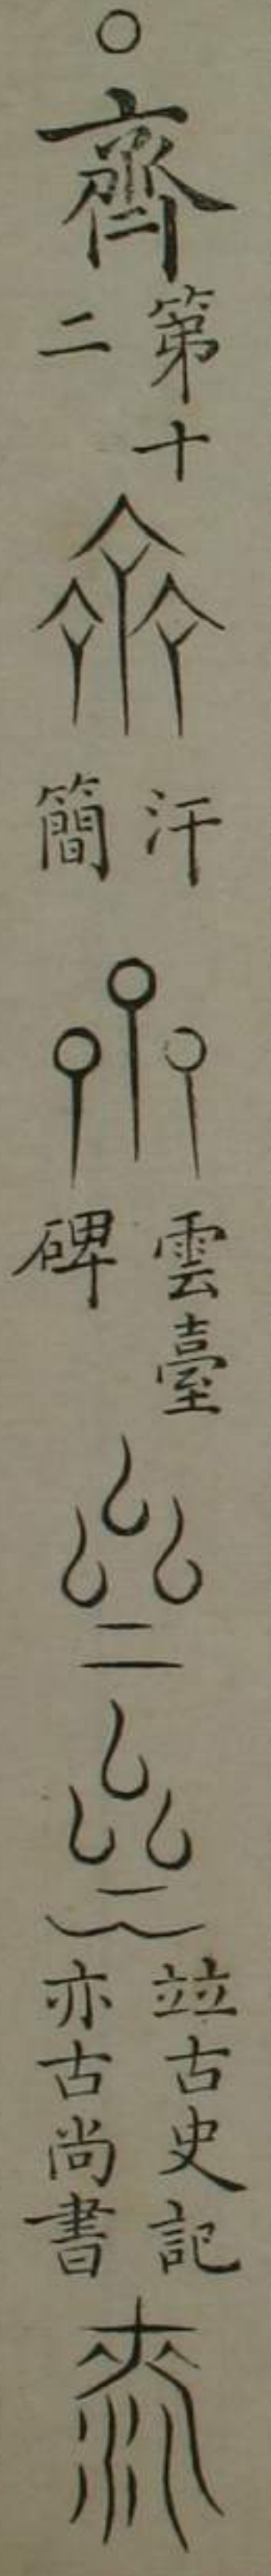 ○齊第十二
汗簡
雲臺碑
竝古史記亦古尚書